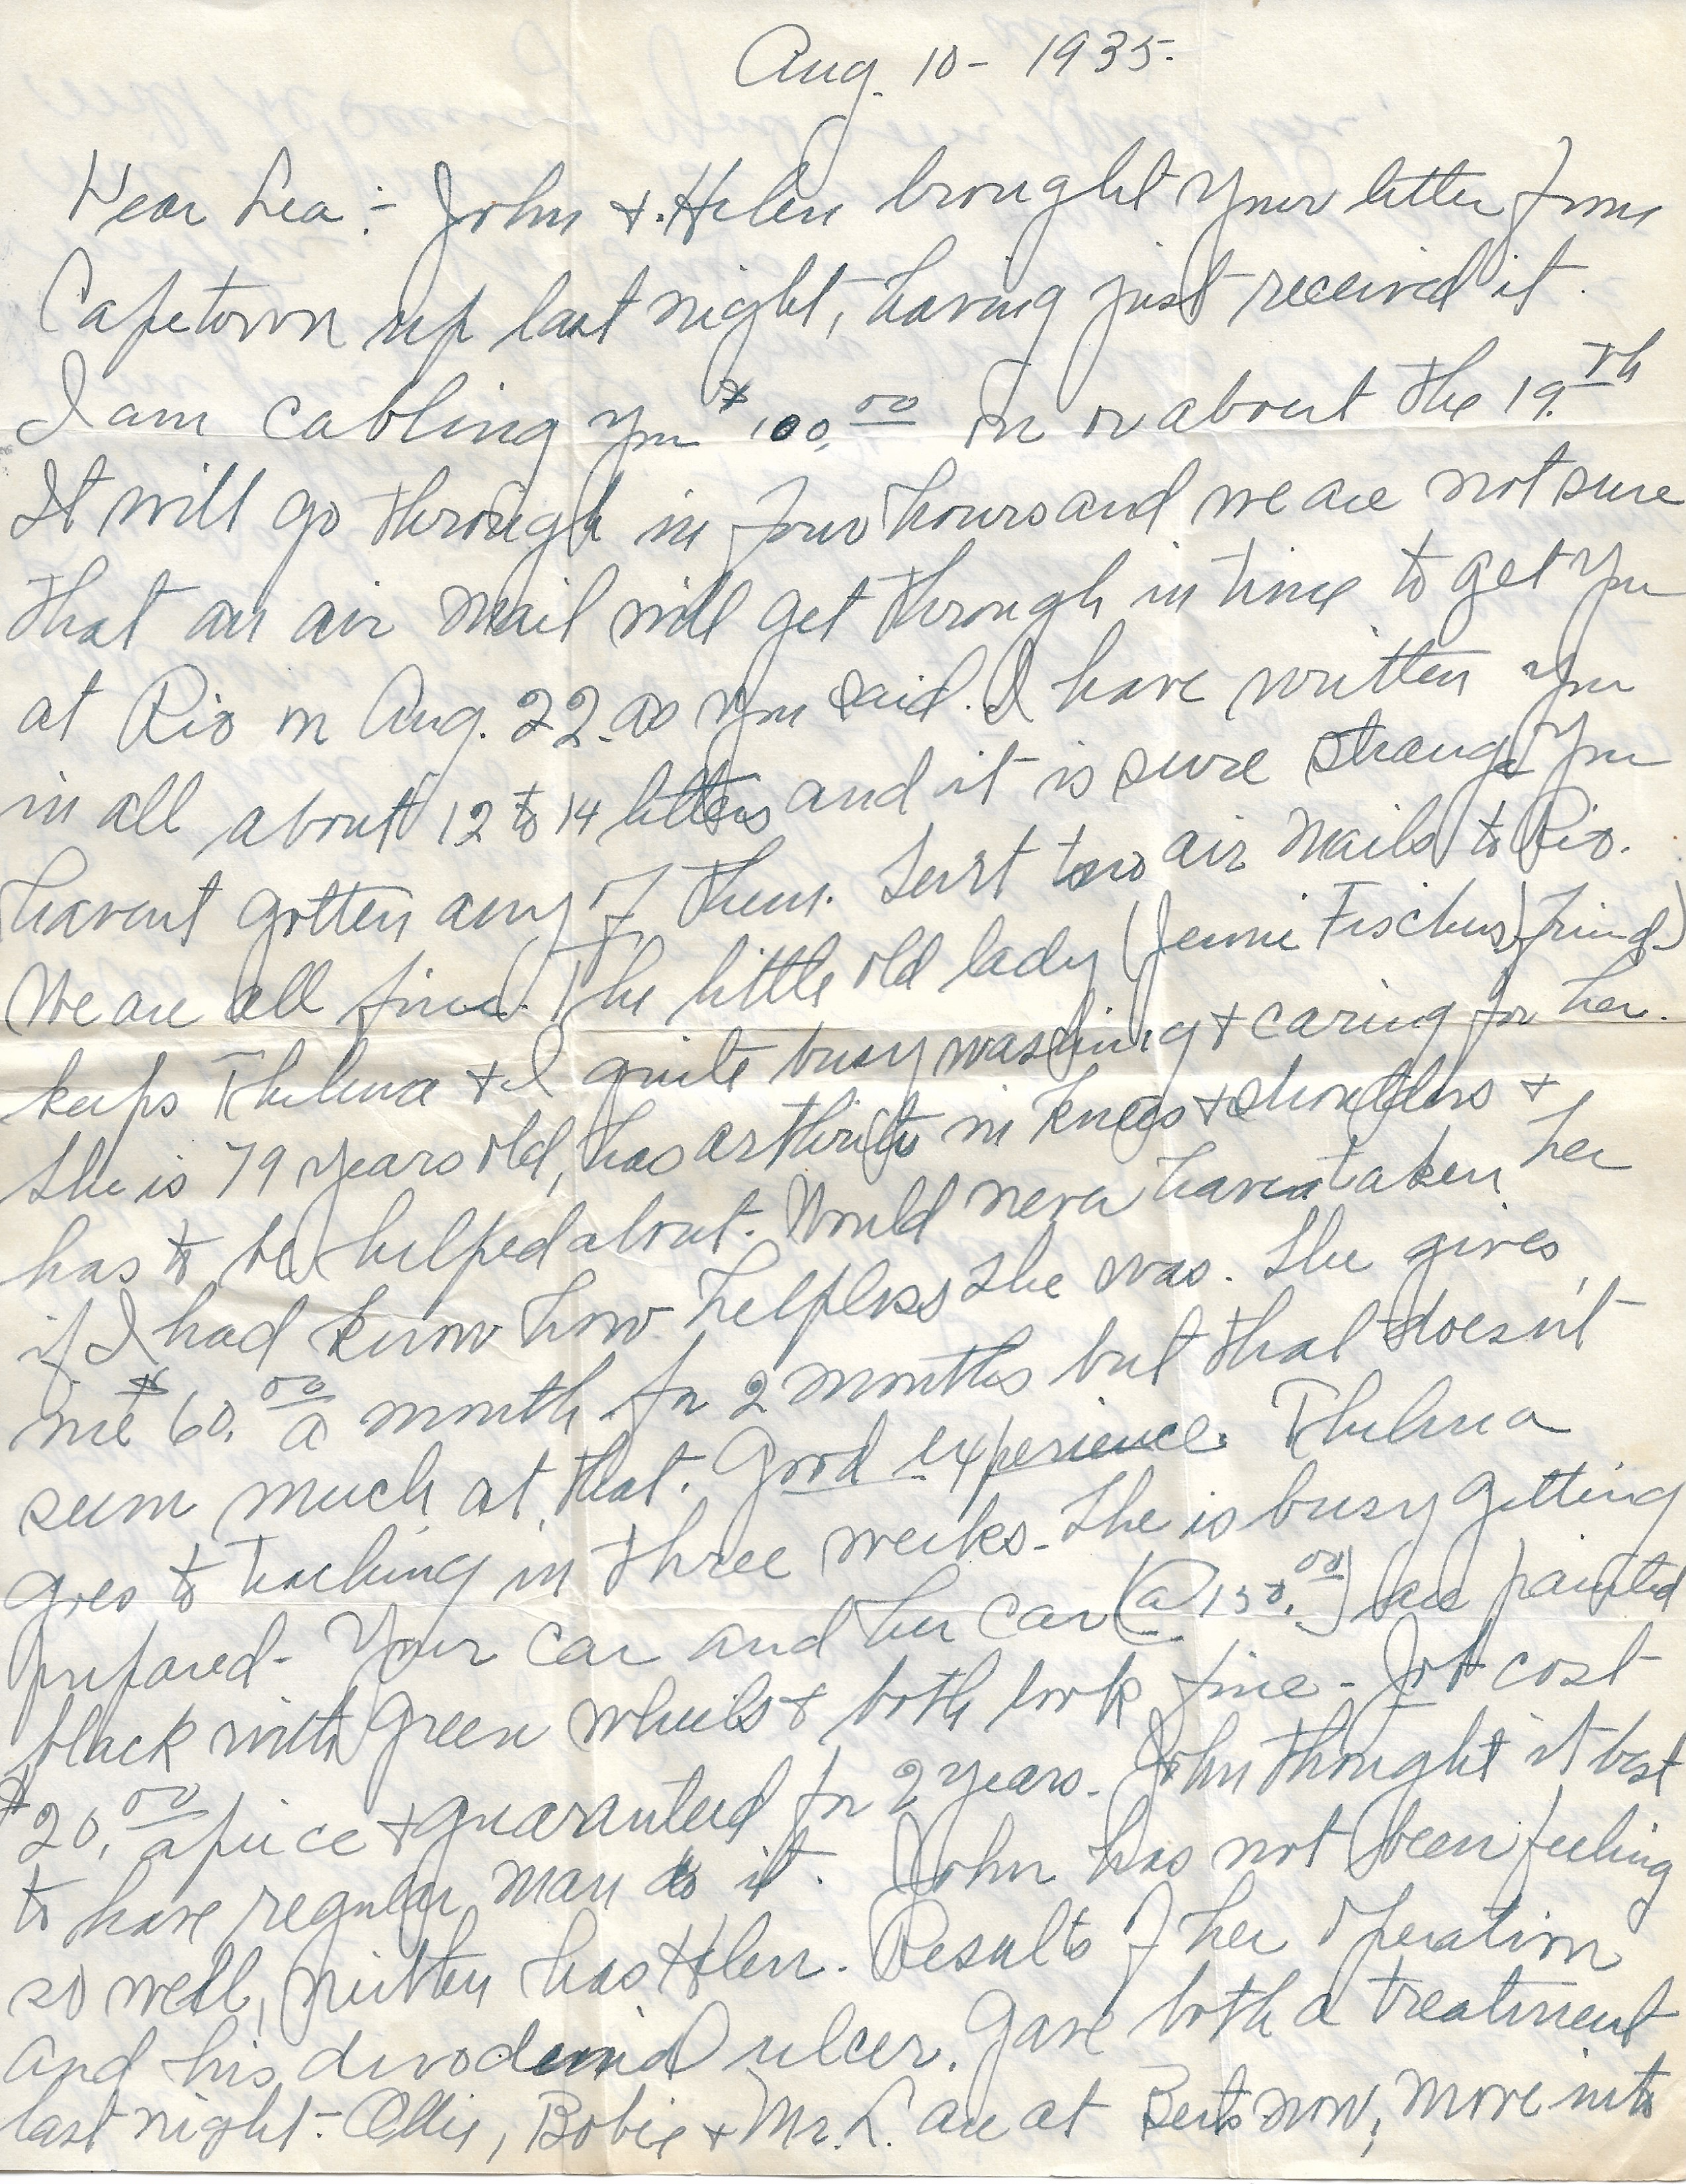 Aug. 10 - 1935.
Dear Lea :- John & Helen brought your letter from
Capetown up last night, having just received it.
I am cabling you $100.00 on or about the 19.th
It will go through in four hours and we are not sure
that an air mail will get through in time to get you
at Rio on Aug. 22. as you said. I have written you
in all about 12 to 14 letters and it is sure strange you
havent gotten any of them. Sent two air mails to Rio.
We are all fine. The little old lady (Jennie Fischers friend)
keeps Thelma & I quite busy washing & caring for her.
She is 79 years old, has arthritis in knees & shoulders &
has to be helped about. Would never have taken her
if I had know how helpless she was. She gives
me $60.00 a month for 2 months but that doesn't
seem much at that. Good experience. Thelma
goes to teaching in three weeks - She is busy getting
prepared - Your car and her car (@ 150.00) are painted
black with green wheels & both look fine - Job cost
$20.00 apiece & guaranteed for 2 years. John thought it best
to have regular man do it. John has not been feeling
so well, neither has Helen. Results of her operation
and his duodenal ulcer. Gave both a treatment
last night - Ollie, Bobie & Mr. L. are at Berts now, move into